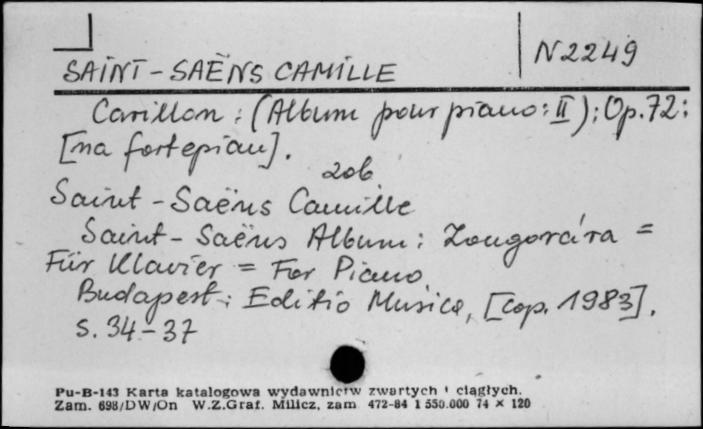 SAINT-SAËNS CAMILLE
N2249
Carillon : (Album pour piano : II) ; Op. 72 :
[na fortepian].
zob
Saint-Saëns Camille
Saint-Saëns Album : Zongorára =
Für Klavier = For Piano
Budapest : Editio Musica, [cop. 1983].
S. 34-37
Pu-B-143 Karta katalogowa wydawnictw zwartych i ciągłych.
Zam. 698/DW/On W.Z.Graf. Milicz, zam 472-84 1 550.000 74 × 120